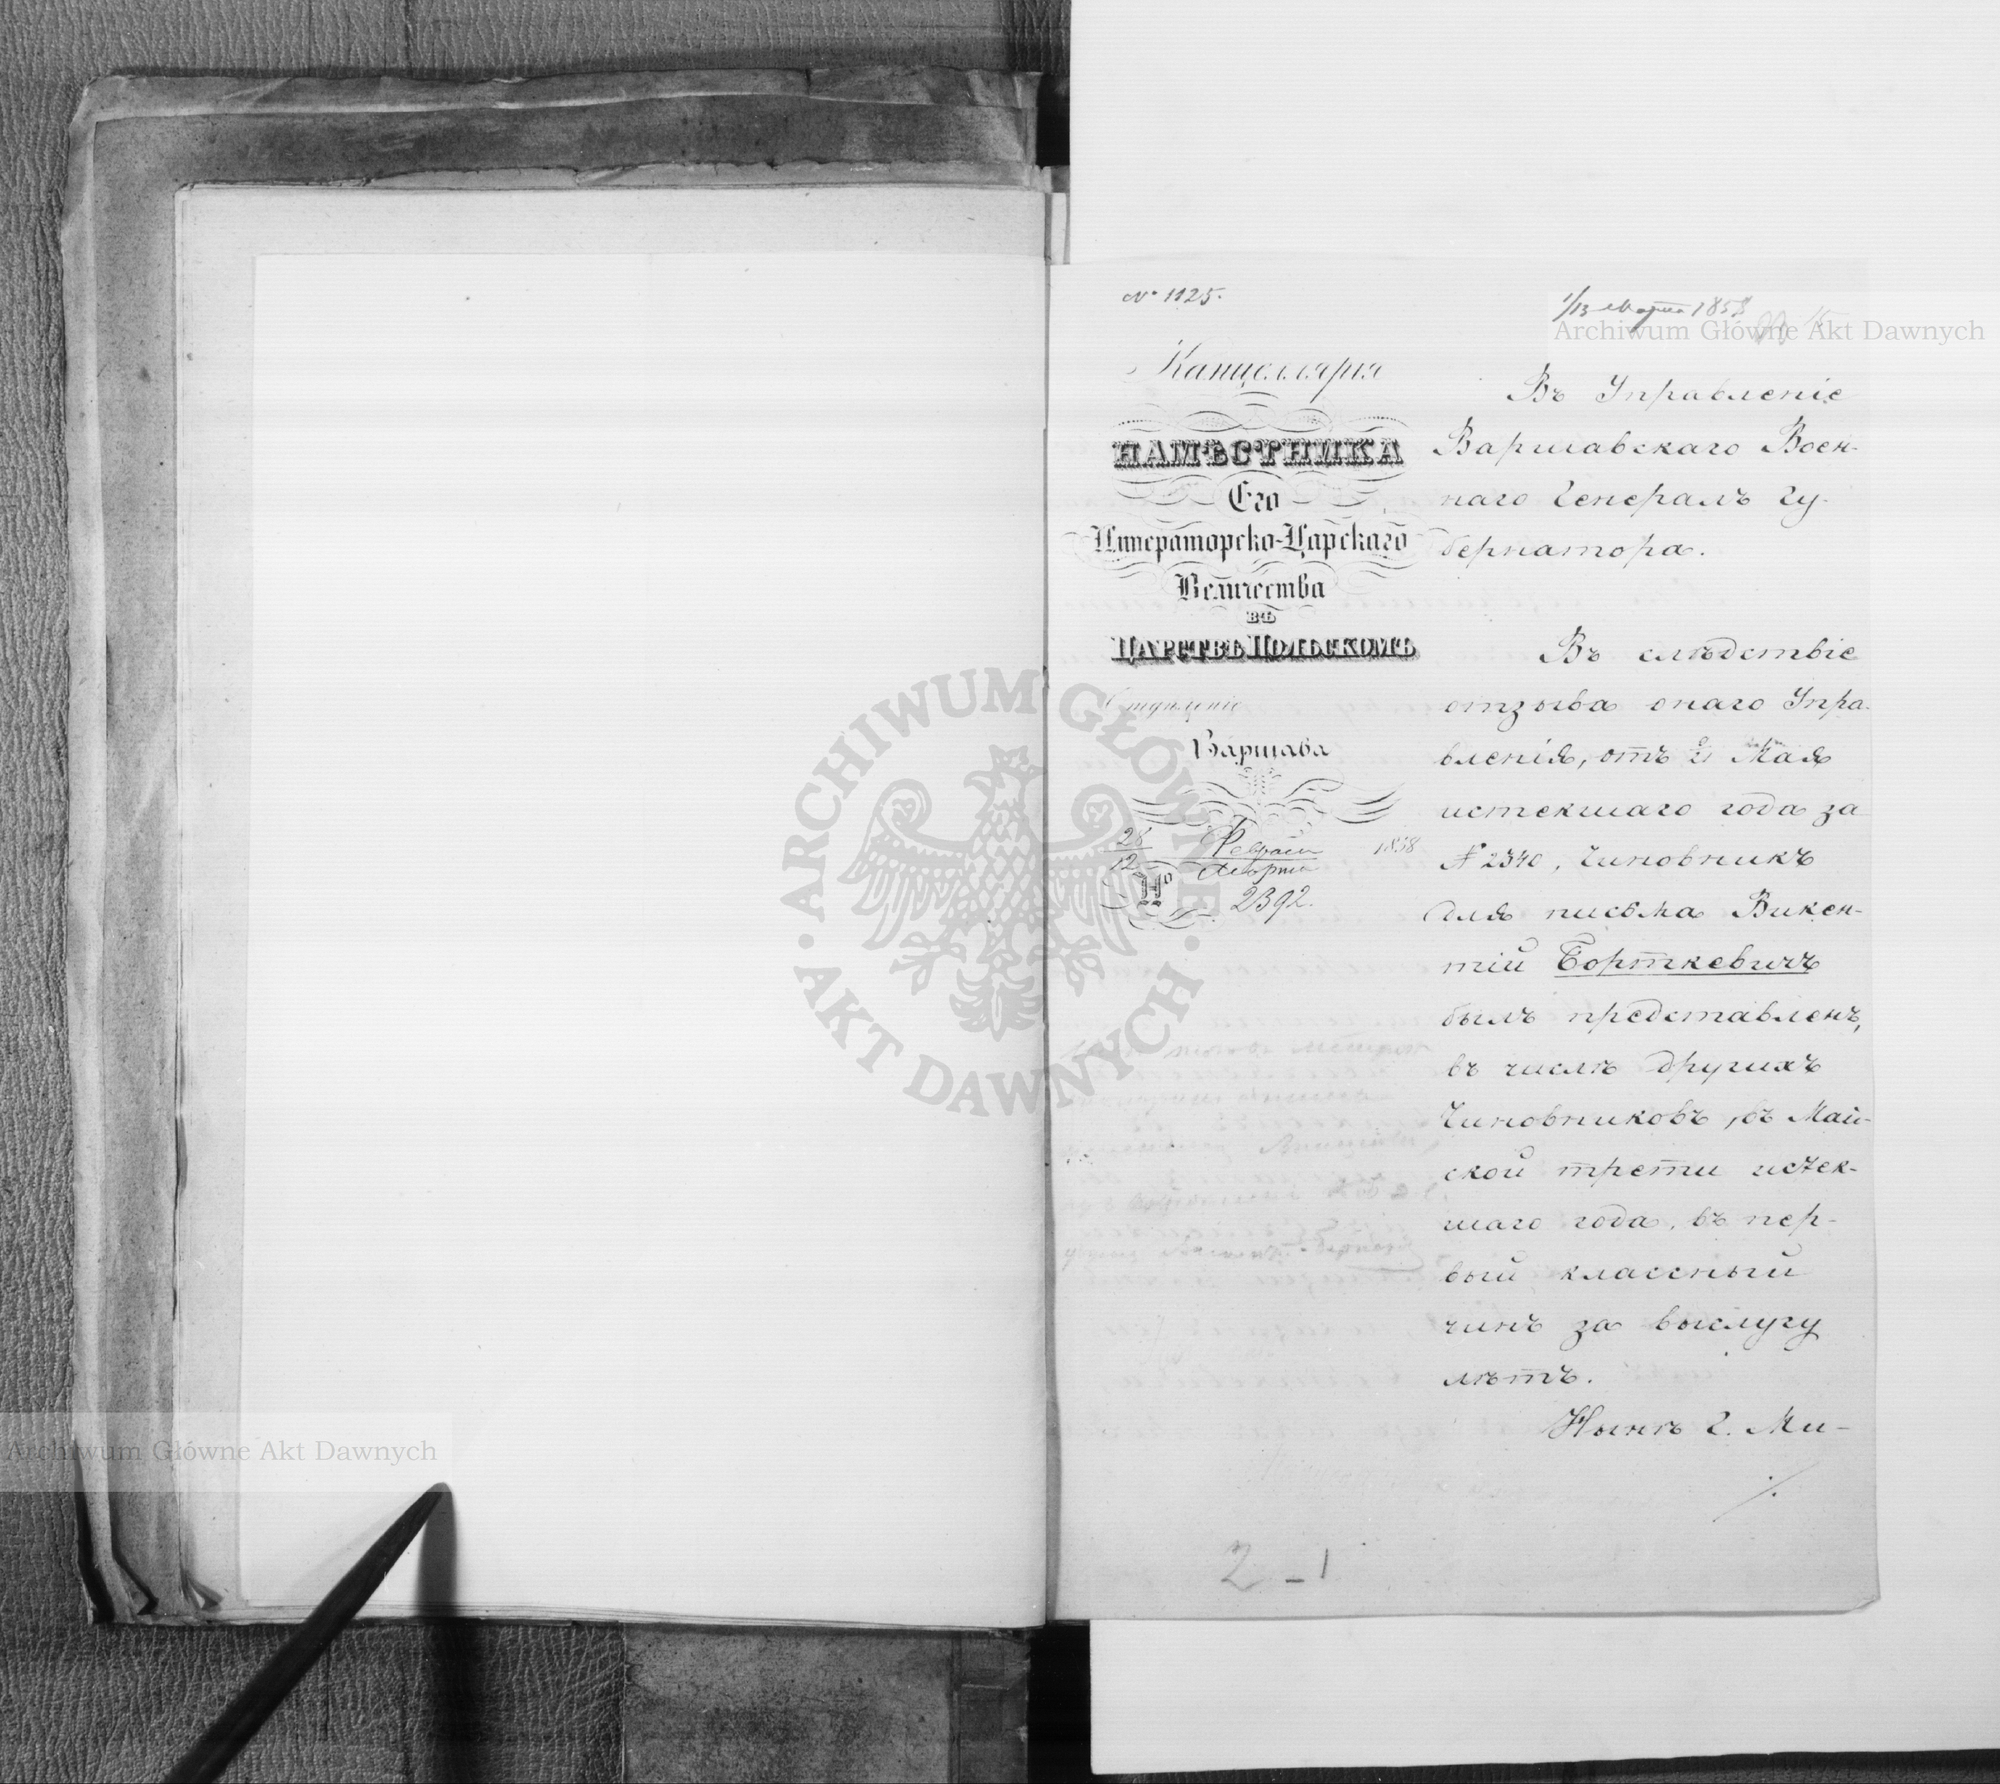 № 1125.
1/13 Марта 1858
Канцелярія
НАМѢСТНИКА
Его
Императорско-Царскаго
Величества
ВЪ
ЦАРСТВѢ ПОЛЬСКОМЪ
Отдѣленіе
Варшава
28 Февраля 1858
12 Марта
№ 2392.
Въ Управленіе
Варшавскаго Воен-
наго Генералъ Гу-
бернатора.
Въ слѣдствіе
отзыва онаго Упра-
вленія, отъ 9/21 Мая
истекшаго года за
№ 2340, Чиновникъ
для письма Викен-
тій Борткевичъ
былъ представленъ,
въ числѣ другихъ
Чиновниковъ, въ Май-
ской трети истек-
шаго года, въ пер-
вый классный
чинъ за выслугу
лѣтъ.
Нынѣ Г. Ми-
2 - 1
Archiwum Główne Akt Dawnych
Archiwum Główne Akt Dawnych
ARCHIWUM GŁÓWNE
AKT DAWNYCH